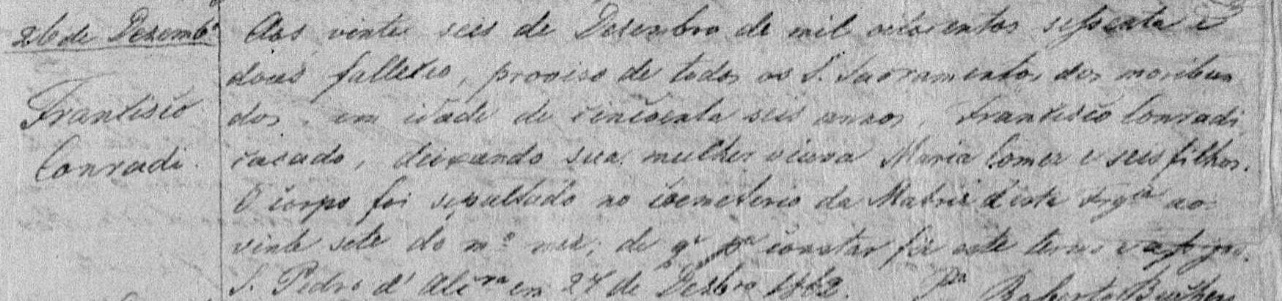 26 de Dezembº
Francisco
Conradi.
Aos vinte seis de Desembro de mil oitocentos sessenta e
dous falleceo, proviso de todos os S. Sacramentos dos moribun
dos, em idade de cincoenta seis annos, Francisco Conradi
casado, deixando sua mulher viuva Maria Gomez e seis filhos.
O corpo foi sepultado no coemeterio da Matriz d'esta Frgª aos
vinte sete do mº mez; de qᵉ pª constar fiz este termo
S. Pedro d'Alcªª em 27 de Dezbro 1862. Pᵉ Roberto